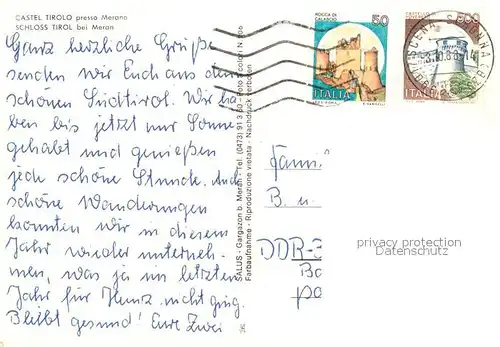 CASTEL TIROLO presso Merano
SCHLOSS TIROL bei Meran
Ganz herzliche Grüße
senden wir Euch aus dem
schönen Südtirol. Wir ha
ben bis jetzt nur Sonne
gehabt und genießen
jede schöne Stunde. Auch
schöne Wanderungen
konnten wir in diesem
Jahr wieder unterneh-
men, was ja im letzten
Jahr für Heinz nicht ging.
Bleibt gesund! Eure Zwei
36
SALUS - Gargazon b. Meran - Tel. (0473) 91
Farbaufnahme - Riproduzione vietata - Nachdruck verboten
ROCCA DI
CALASCIO
50
ITALIA
ITALIA
SCENA
Fami
B. u
DDR-
Bo
po
privacy protection
Datenschutz